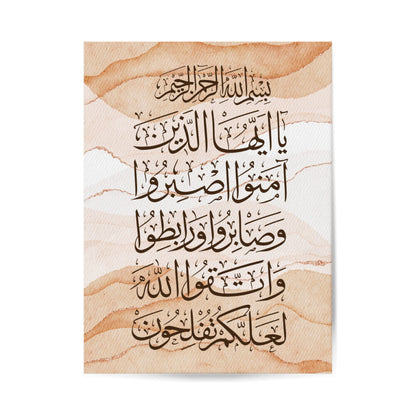 بسم الله الرحمن الرحيم
يا ايها الذين
آمنوا اصبروا
وصابروا ورابطوا
واتقوا الله
لعلكم تفلحون